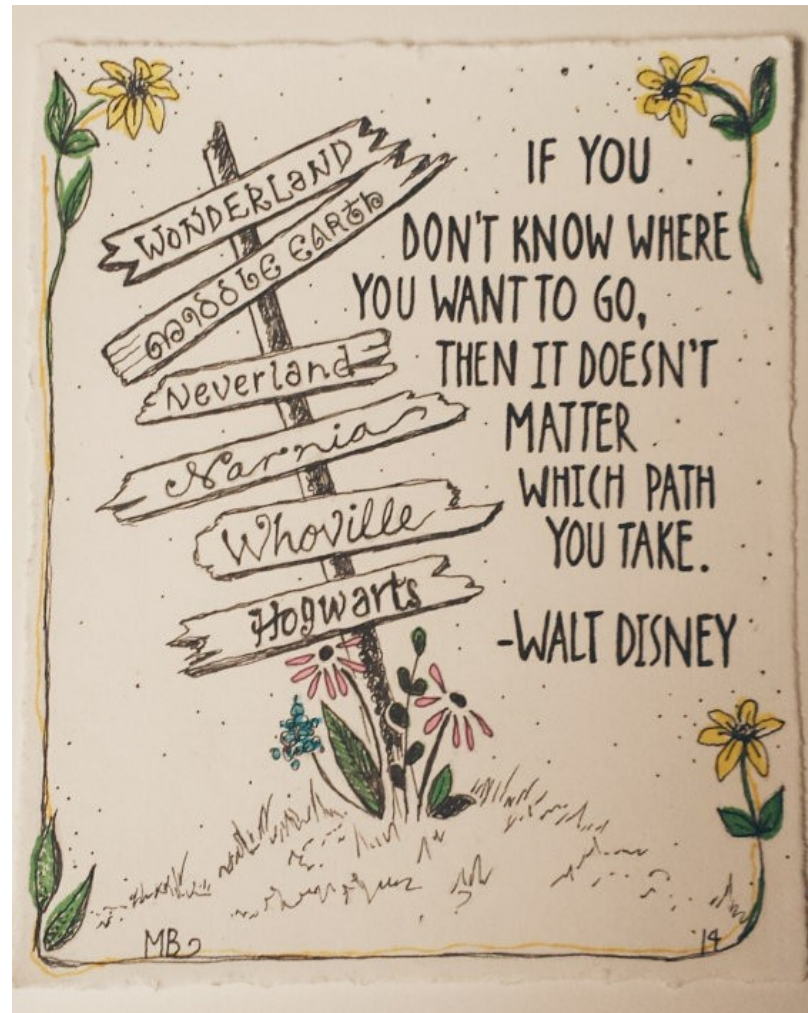 WONDERLAND
MIDDLE EARTH
Neverland
Narnia
Whoville
Hogwarts
IF YOU
DON'T KNOW WHERE
YOU WANT TO GO,
THEN IT DOESN'T
MATTER
WHICH PATH
YOU TAKE.
-WALT DISNEY
MB
14